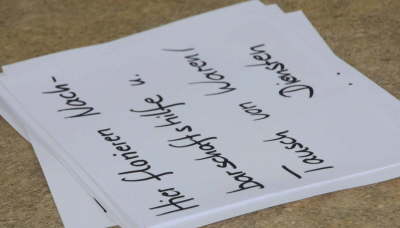 Hier florieren Nach-
barschaftshilfe u.
Tausch von Waren/
Diensten